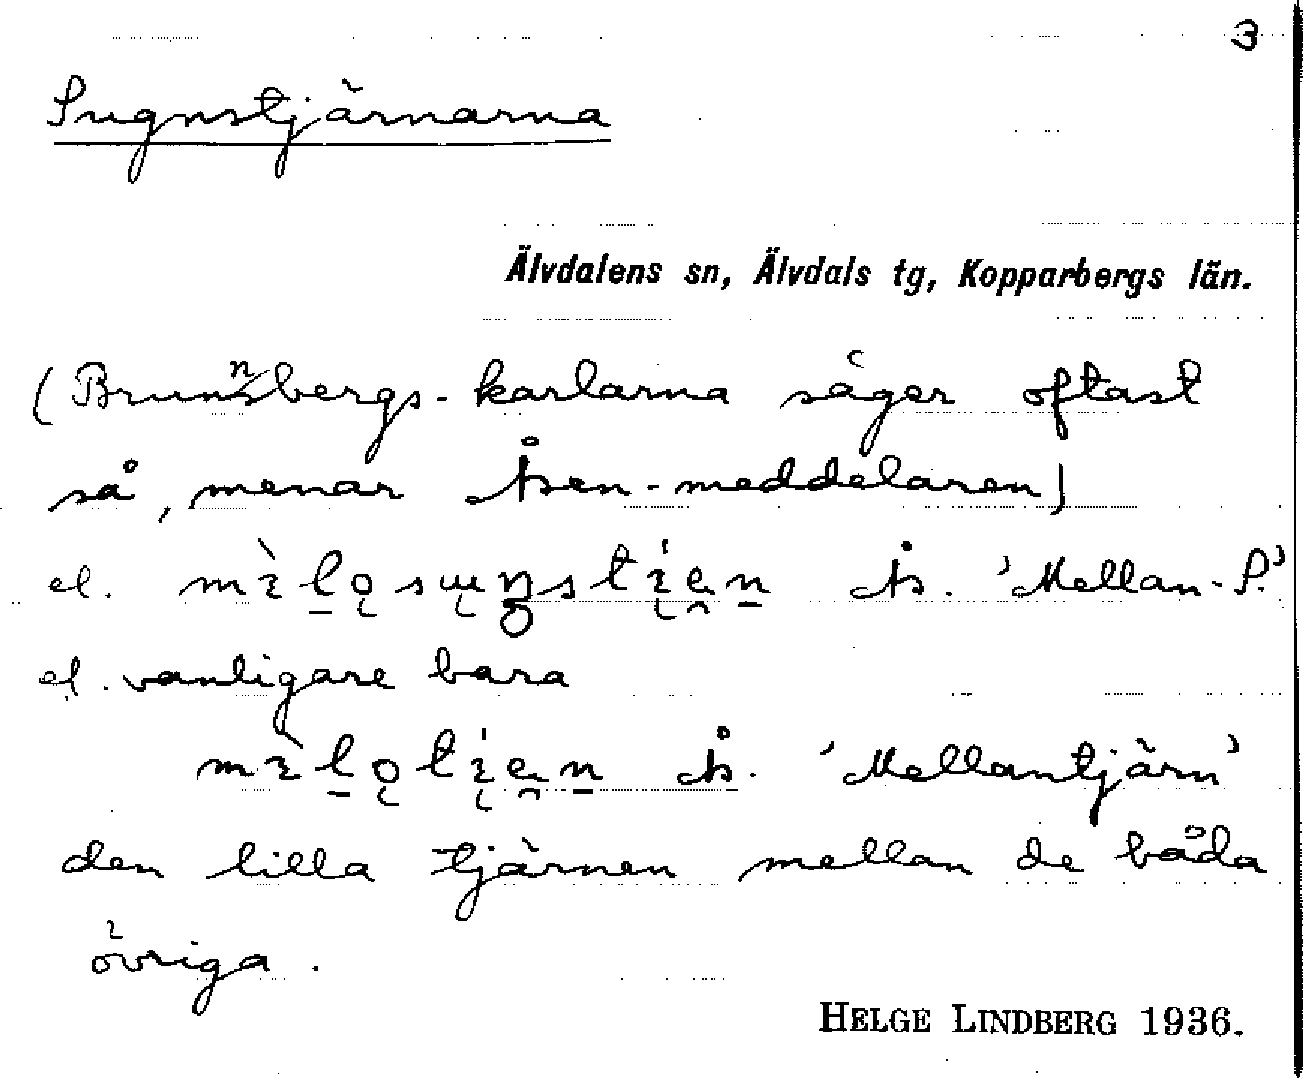 3
Sugnstjärnarna
Älvdalens sn, Älvdals tg, Kopparbergs län.
(Brunnbergs-karlarna säger oftast
så, menar Åsen-meddelaren)
el. Å. 'Mellan-S.'
el. vanligare bara
Å. 'Mellantjärn'
den lilla tjärnen mellan de båda
övriga.
HELGE LINDBERG 1936.